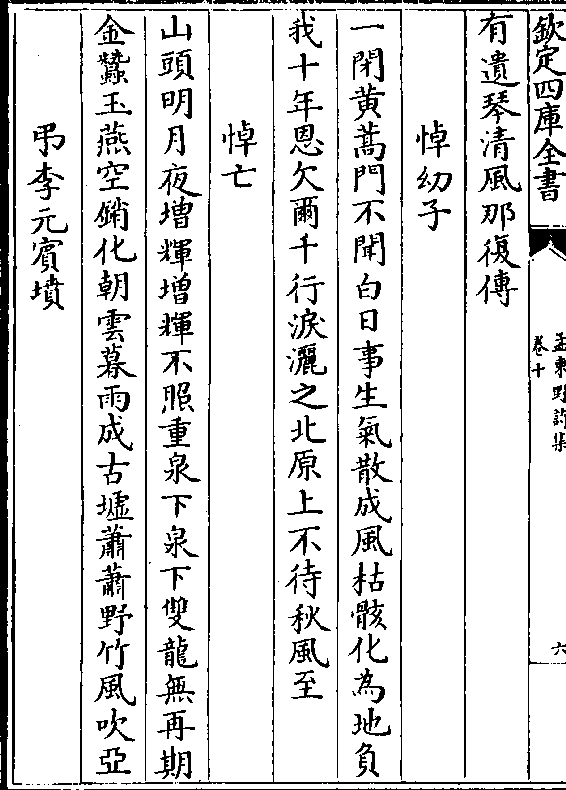 欽定四庫全書
孟東野詩集
卷十
六
有遺琴清風那復傳
悼幼子
一閉黃蒿門不聞白日事生氣散成風枯骸化為地負
我十年恩欠爾千行淚灑之北原上不待秋風至
悼亡
山頭明月夜増輝增輝不照重泉下泉下雙龍無再期
金蠶玉燕空銷化朝雲暮雨成古墟蕭蕭野竹風吹亞
弔李元賓墳